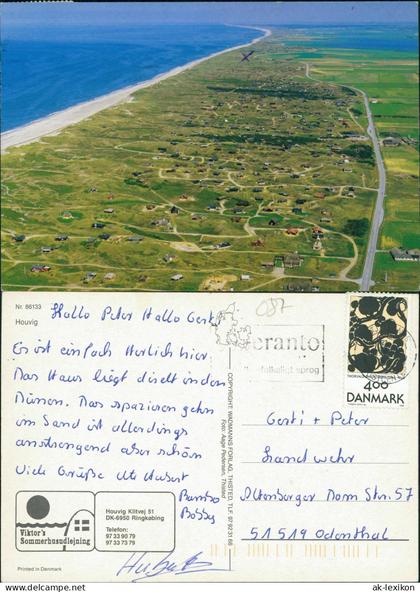 © www.ak-lexikon.de
Nr. 86133
Houvig
Hallo Peter Hallo Gerti
Es ist einfach Herlich hier.
Das Haus liegt direkt in den
Dünen. Das spazieren gehn
im Sand ist allerdings
anstrengend aber schön
Viele Grüße Ute Hubert
Bobby
Viktor's
Sommerhusudlejning
Houvig Klitvej 51
DK-6950 Ringkøbing
Telefon:
97 33 90 79
97 33 73 79
Hubert
Printed in Denmark
COPYRIGHT WADMANNS FORLAG, THISTED, TLF. 97 92 31 68
Foto: Aage Pedersen, Thisted
087
eranto
folkeligt sprog
4.00
DANMARK
Gerti + Peter
Landwehr
Altenberger Dom Str. 57
51519 Odenthal